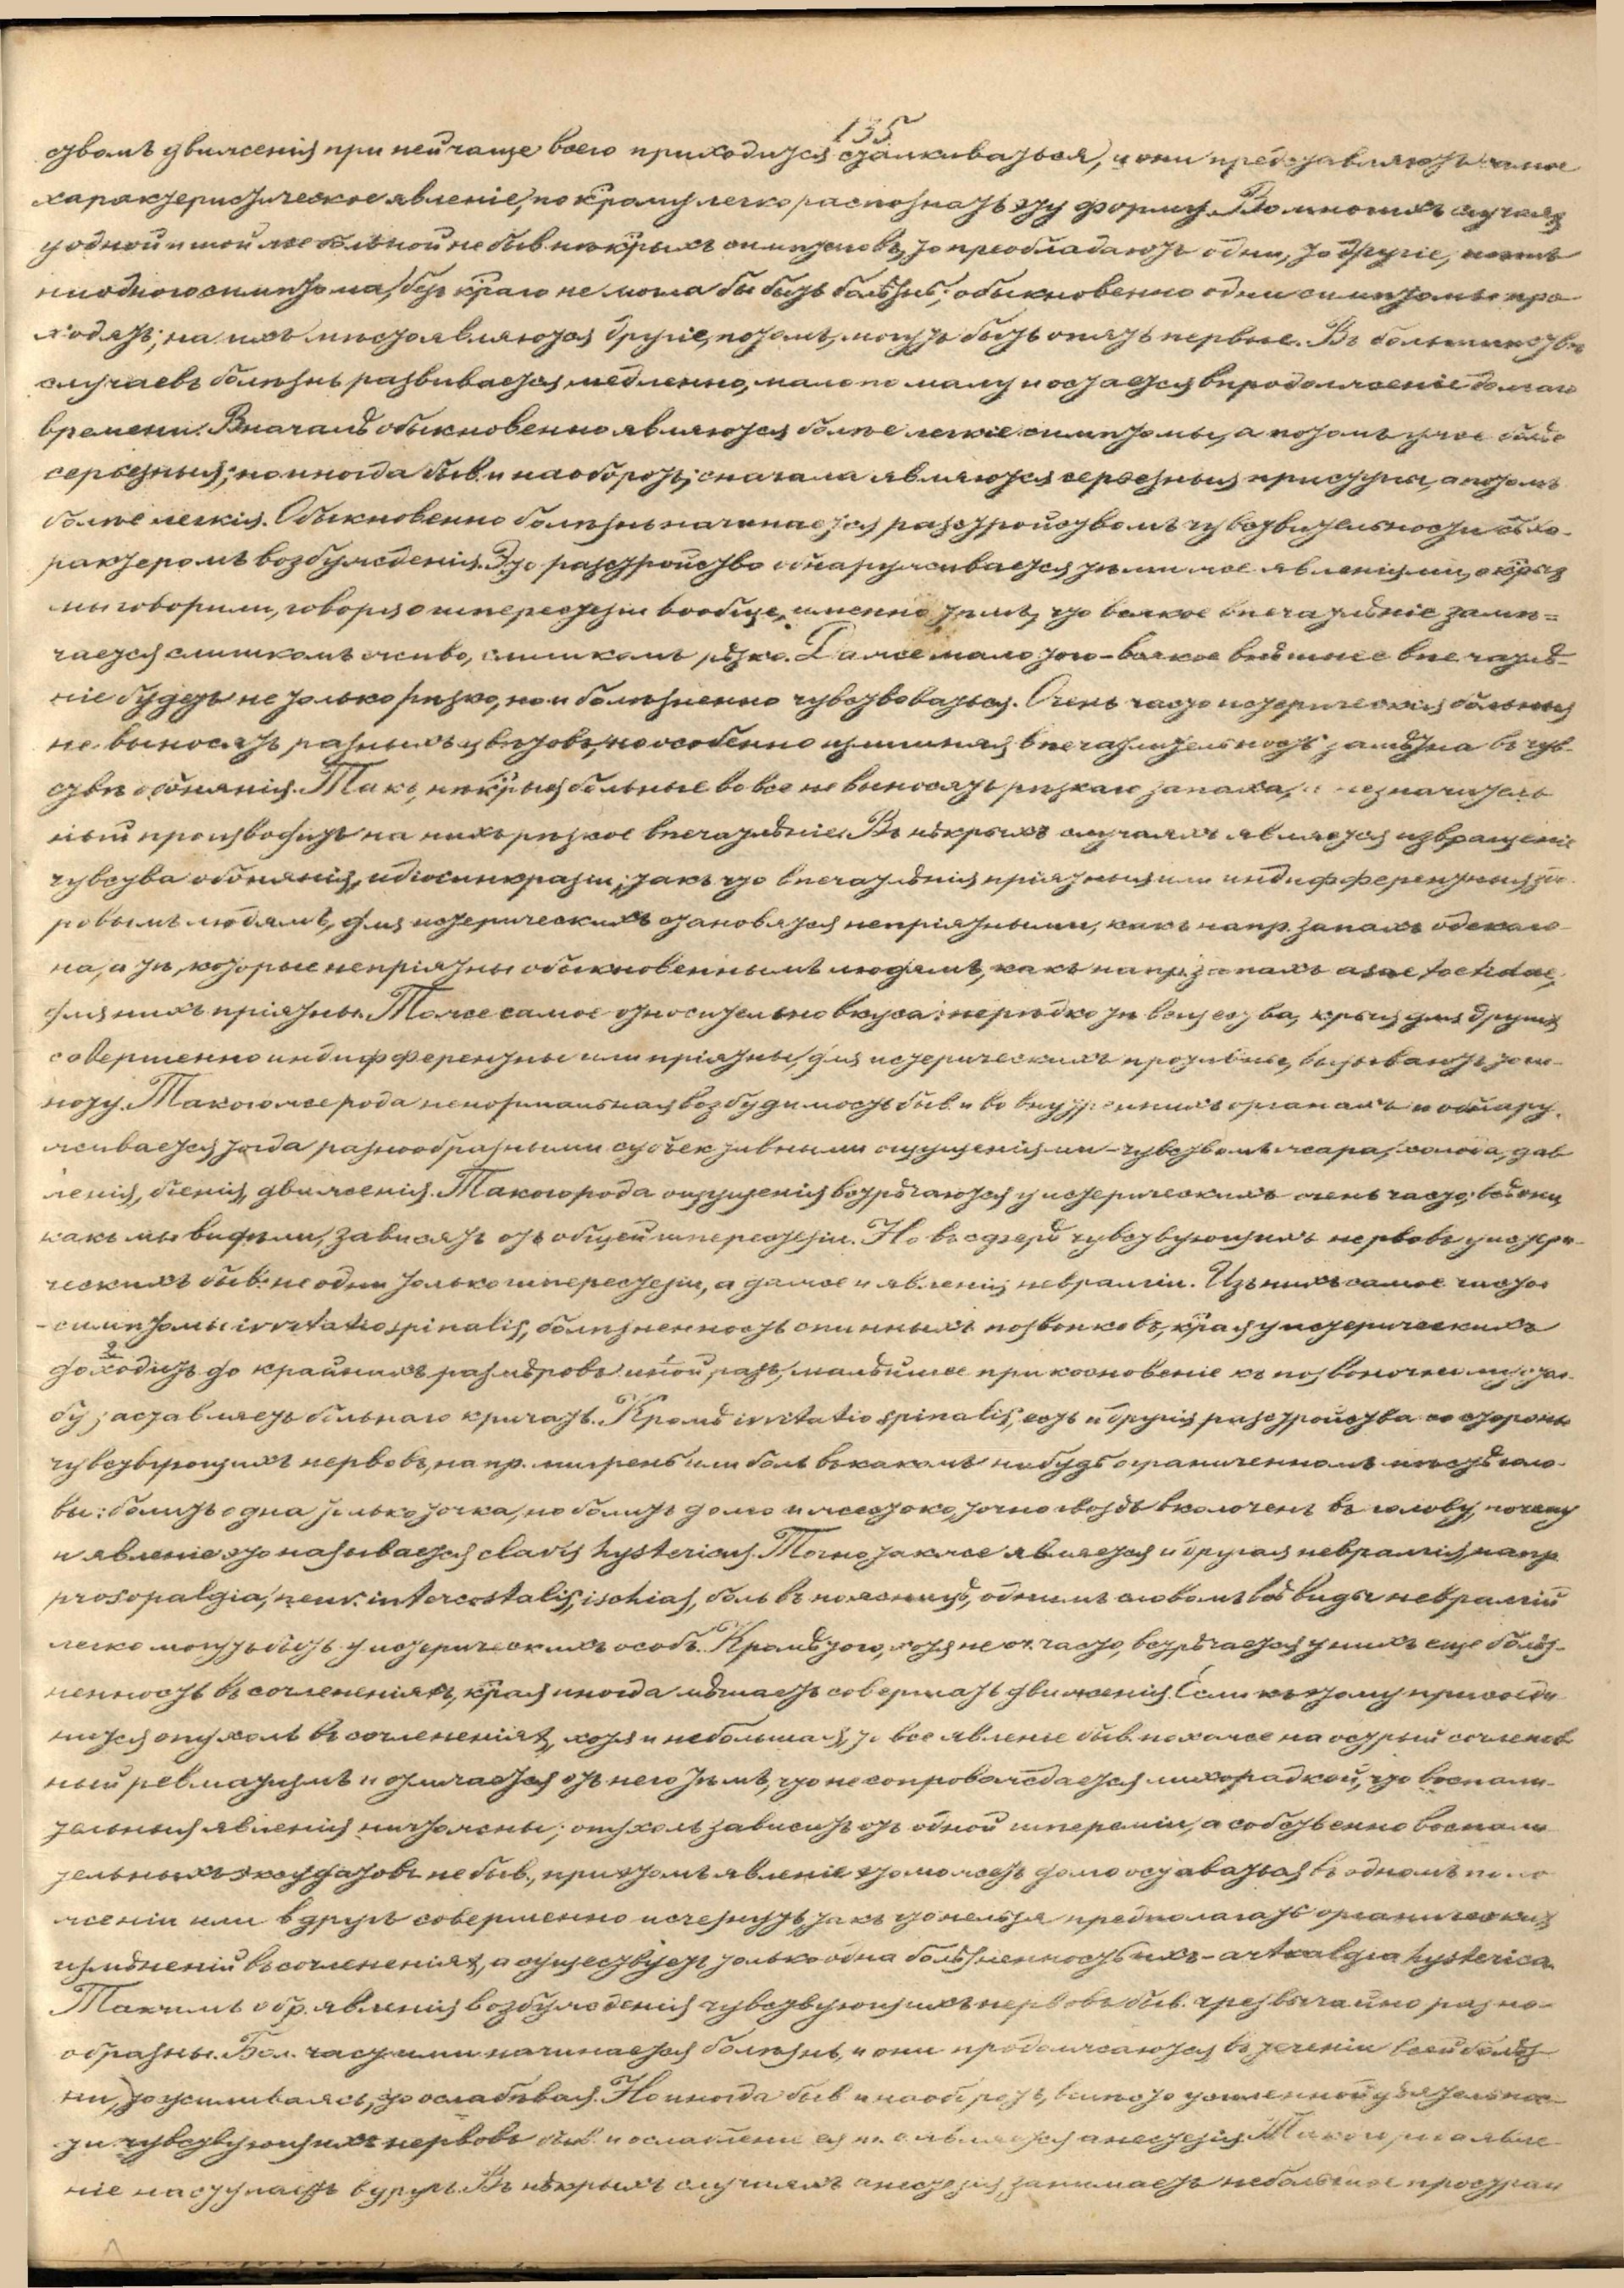 135
ствомъ движенія при ней чаще всего приходится сталкиваться, и они представляютъ самое
характеристическое явленіе, по крому легко распознать эту форму. Во многихъ случаяхъ
у одной и той же больной не быв. нѣкрыхъ симптомовъ, то преобладаютъ одни, то другіе, нѣтъ
ни одного симптома, безъ краго не могла бы быть болѣзнь; обыкновенно одни симптомы про-
ходятъ, на ихъ мѣсто являются другіе, потомъ, могутъ быть опять первые. Въ большинствѣ
случаевъ болѣзнь развивается медленно, мало по малу и остается впродолженіе долгаго
времени. Вначалѣ обыкновенно являются болѣе легкіе симптомы, а потомъ уже болѣе
серьезныя; но иногда быв. и наоборотъ; сначала являются серьезныя приступы, а потомъ
болѣе легкія. Обыкновенно болѣзнь начинается разстройствомъ чувствительности съ ха-
рактеромъ возбужденія. Это разстройство обнаруживается тѣми же явленіями, о крыхъ
мы говорили, говоря о гиперестезіи вообще, именно тѣмъ, что всякое впечатлѣніе замѣ-
чается слишкомъ живо, слишкомъ рѣзко. Даже мало того - всякое внѣшнее впечатлѣ-
ніе будетъ не только рѣзко, но и болѣзненно чувствоваться. Очень часто истерическія больныя
не выносятъ разныхъ цвѣтовъ, но особенно излишняя впечатлительность замѣтна въ чув-
ствѣ обонянія. Такъ, нѣкрыя больные вовсе не выносятъ рѣзкаго запаха, и незначитель
ный производитъ на нихъ рѣзкое впечатлѣніе. Въ нѣкрыхъ случаяхъ является извращеніе
чувства обонянія, идіосинкразіи, такъ что впечатлѣнія пріятныя или индифферентныя здо-
ровымъ людямъ, для истерическихъ становятся непріятными, какъ напр. запахъ одекало-
на, а тѣ, которые непріятны обыкновеннымъ людямъ, какъ напр. запахъ asae foetidae,
для нихъ пріятны. Тоже самое относительно вкуса: нерѣдко тѣ вещества, крыя для другихъ
совершенно индифферентны или пріятны, для истерическихъ противны, вызываютъ тош-
ноту. Такого же рода ненормальная возбудимость быв. и во внутреннихъ органахъ и обнару-
живается тогда разнообразными субъективными ощущеніями - чувствомъ жара, холода, дав
ленія, біенія, движенія. Такого рода ощущенія встрѣчаются у истерическихъ очень часто; всѣ они,
какъ мы видѣли, зависятъ отъ общей гиперестезіи. Но въ сферѣ чувствующихъ нервовъ у истери-
ческихъ быв. не одни только гиперестезіи, а даже и явленія невралгіи. Изъ нихъ самое частое
- симптомы irritatio spinalis, болѣзненность спинныхъ позвонковъ, края у истерическихъ
доходитъ до крайнихъ размѣровъ: иной разъ, малѣйшее прикосновеніе къ позвоночному стол-
бу заставляетъ больнаго кричать. Кромѣ irritatio spinalis, есть и другія разстройства со стороны
чувствующихъ нервовъ, напр. мигрень или боль въ какомъ нибудь ограниченномъ мѣстѣ голо-
вы: болитъ одна только точка, но болитъ долго и жестоко, точно гвоздь вколоченъ въ голову, почему
и явленіе это называется clavis hystericus. Точно также является и другая невралгія, напр.
prosopalgia, neur. intercostalis, ischias, боль въ поясницѣ, однимъ словомъ всѣ виды невралгій
легко могутъ быть у истерическихъ особъ. Кромѣ того, хотя не оч. часто, встрѣчается у нихъ еще болѣз-
ненность въ сочлененіяхъ, края иногда мѣшаетъ совершать движенія. Если къ этому присоеди-
нится опухоль въ сочлененіяхъ, хотя и небольшая, то все явленье быв. похоже на острый сочленов
ный ревматизмъ и отличается отъ него тѣмъ, что не сопровождается лихорадкой, что воспали-
тельныя явленія ничтожны; опухоль зависитъ отъ одной гипереміи, а собственно воспали-
тельныхъ эксудатовъ не быв., при этомъ явленіе это можетъ долго оставаться въ одномъ поло
женіи или вдругъ совершенно исчезнуть, такъ что нельзя предполагать органическихъ
измѣненій въ сочлененіяхъ, а существуетъ только одна болѣзненность ихъ - artralgia hysterica.
Такимъ обр. явленія возбужденія чувствующихъ нервовъ быв. чрезвычайно разно-
образны. Бол. част. ими начинается болѣзнь, и они продолжаются въ теченіи всей болѣз-
ни, то усиливаясь, то ослабѣвая. Но иногда быв. и наоборотъ, вмѣсто усиленной дѣятельнос-
ти чувствующихъ нервовъ быв. и ослабленіе ея и является анестезія. Такого рода явле-
ніе наступаетъ вдругъ. Въ нѣкрыхъ случаяхъ анестезія занимаетъ небольшое простран